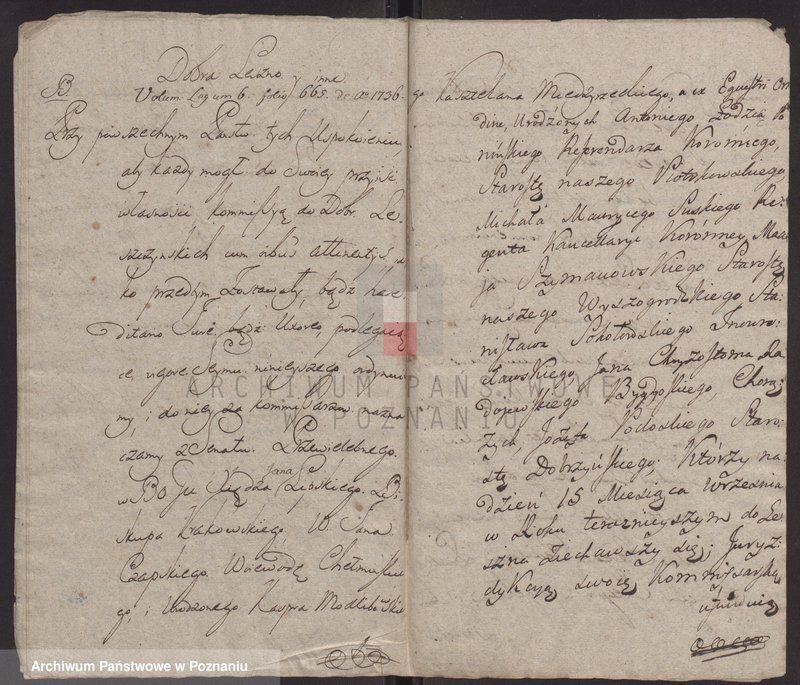 B
Dobra Leszno y inne
Volum. Legum 6. folio 665. de Ao 1736.
Przy powszechnym Państw tych Uspokoieniu,
aby każdy mogł do Swoiey przyiść
własności kommissyą do Dobr Le-
szczynskich cum omnibus attinentiis
ko przedtym zostawały, bądź hære-
ditario Jure, bądź Uxoreo, podlegaią
ce, vigore Seymu ninieyszego ordynuie
my, i do niey za Kommissarzow nazna
czamy z Senatu. Przewielebnego.
w Bo Je Xiędza Jana Lipskiego Bi-
skupa Krakowskiego, W. Jana
Czapskiego Woiewodę Chełmińskie
go, i Urodzonego Kaspra Modlibowskie
go Kasztelana Miedzyrzeckiego, a ex Equestri Or
dine, Urodzonych Antoniego Łodzia Po
nińskiego Referendarza Koronnego,
Starostę naszego Piotrkowskiego,
Michała Maurycego Suskiego Re-
genta Kancellaryi Koronney, Maa
ja Szymanowskiego Starostę
naszego Wyszogrodzkiego Sta-
nisława Sokołowskiego Inowro-
cławskiego Jana Chryzostoma Ra
doiewskiego Bydgoskiego, Chorą
żych Jozefa Podoskiego Staro-
stę Dobrzyńskiego: Którzy na
dzień 15 Miesiąca Września
w Roku teraznieyszym do Le
szna ziechawszy się; Juryz-
dykcyą swoią Kommissarską
ufundują
ARCHIWUM PAŃSTWOWE
W POZNANIU
Archiwum Państwowe w Poznaniu